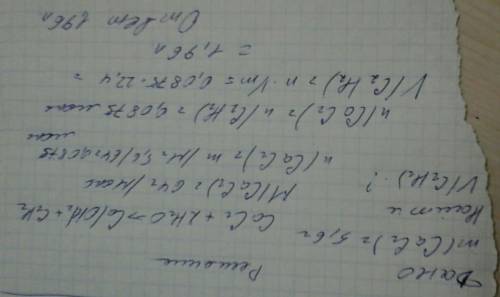 Дано Решение
m(CaC2) = 5,6г
Найти CaC2 + 2H2O = Ca(OH)2 + C2H2
V(C2H2) - ? M(CaC2) = 64г/моль
n(CaC2) = m/M = 5,6/64 = 0,0875 моль
n(CaC2) = n(C2H2) = 0,0875 моль
V(C2H2) = n · Vm = 0,0875 · 22,4 =
= 1,96л
Ответ 1,96л